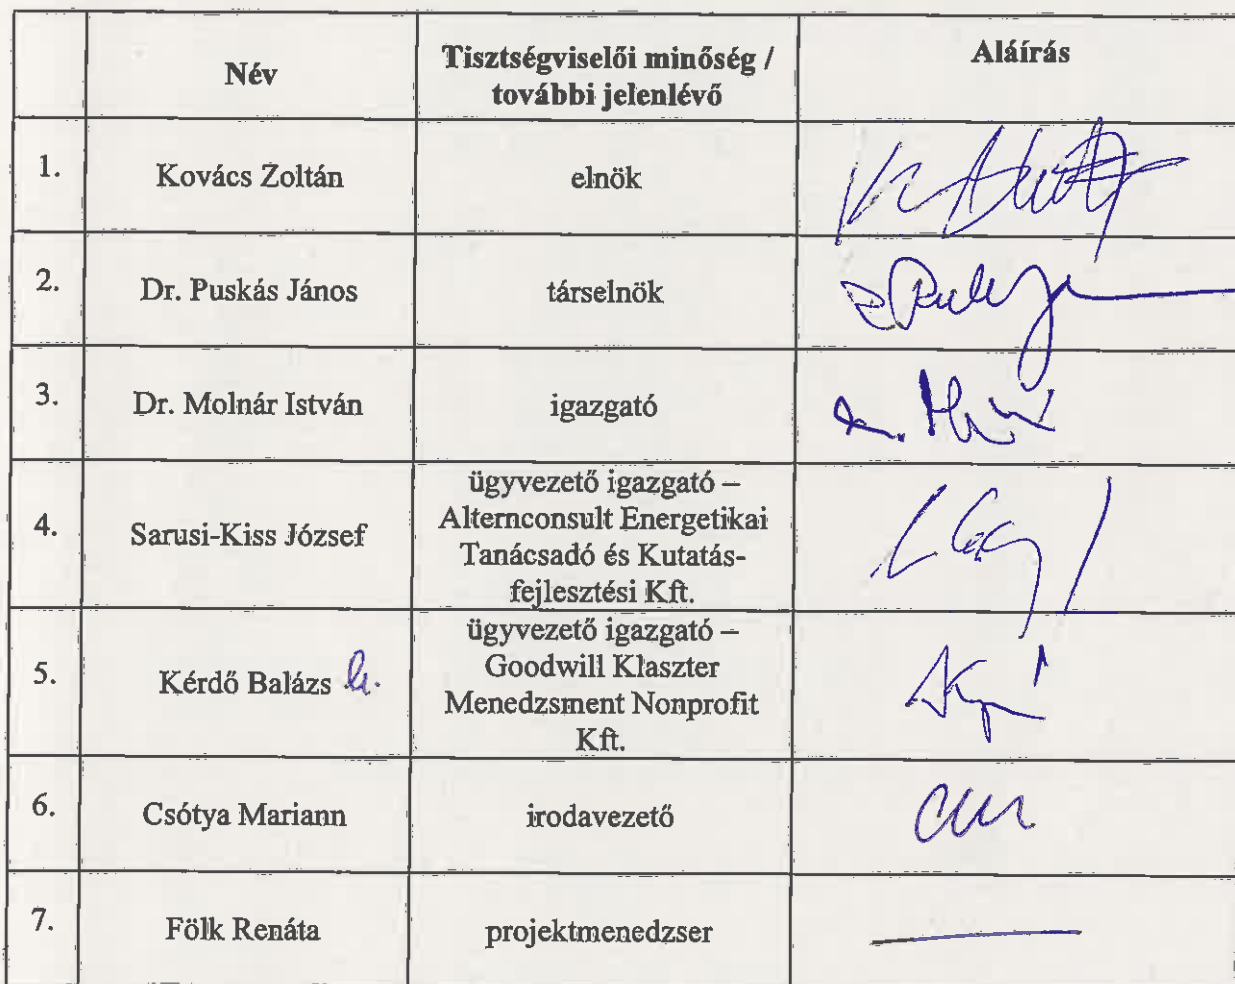 Név
Tisztségviselői minőség /
további jelenlévő
Aláírás
1.
Kovács Zoltán
elnök
2.
Dr. Puskás János
társelnök
3.
Dr. Molnár István
igazgató
4.
Sarusi-Kiss József
ügyvezető igazgató –
Alternconsult Energetikai
Tanácsadó és Kutatás-
fejlesztési Kft.
5.
Kérdő Balázs
ügyvezető igazgató –
Goodwill Klaszter
Menedzsment Nonprofit
Kft.
6.
Csótya Mariann
irodavezető
7.
Fölk Renáta
projektmenedzser